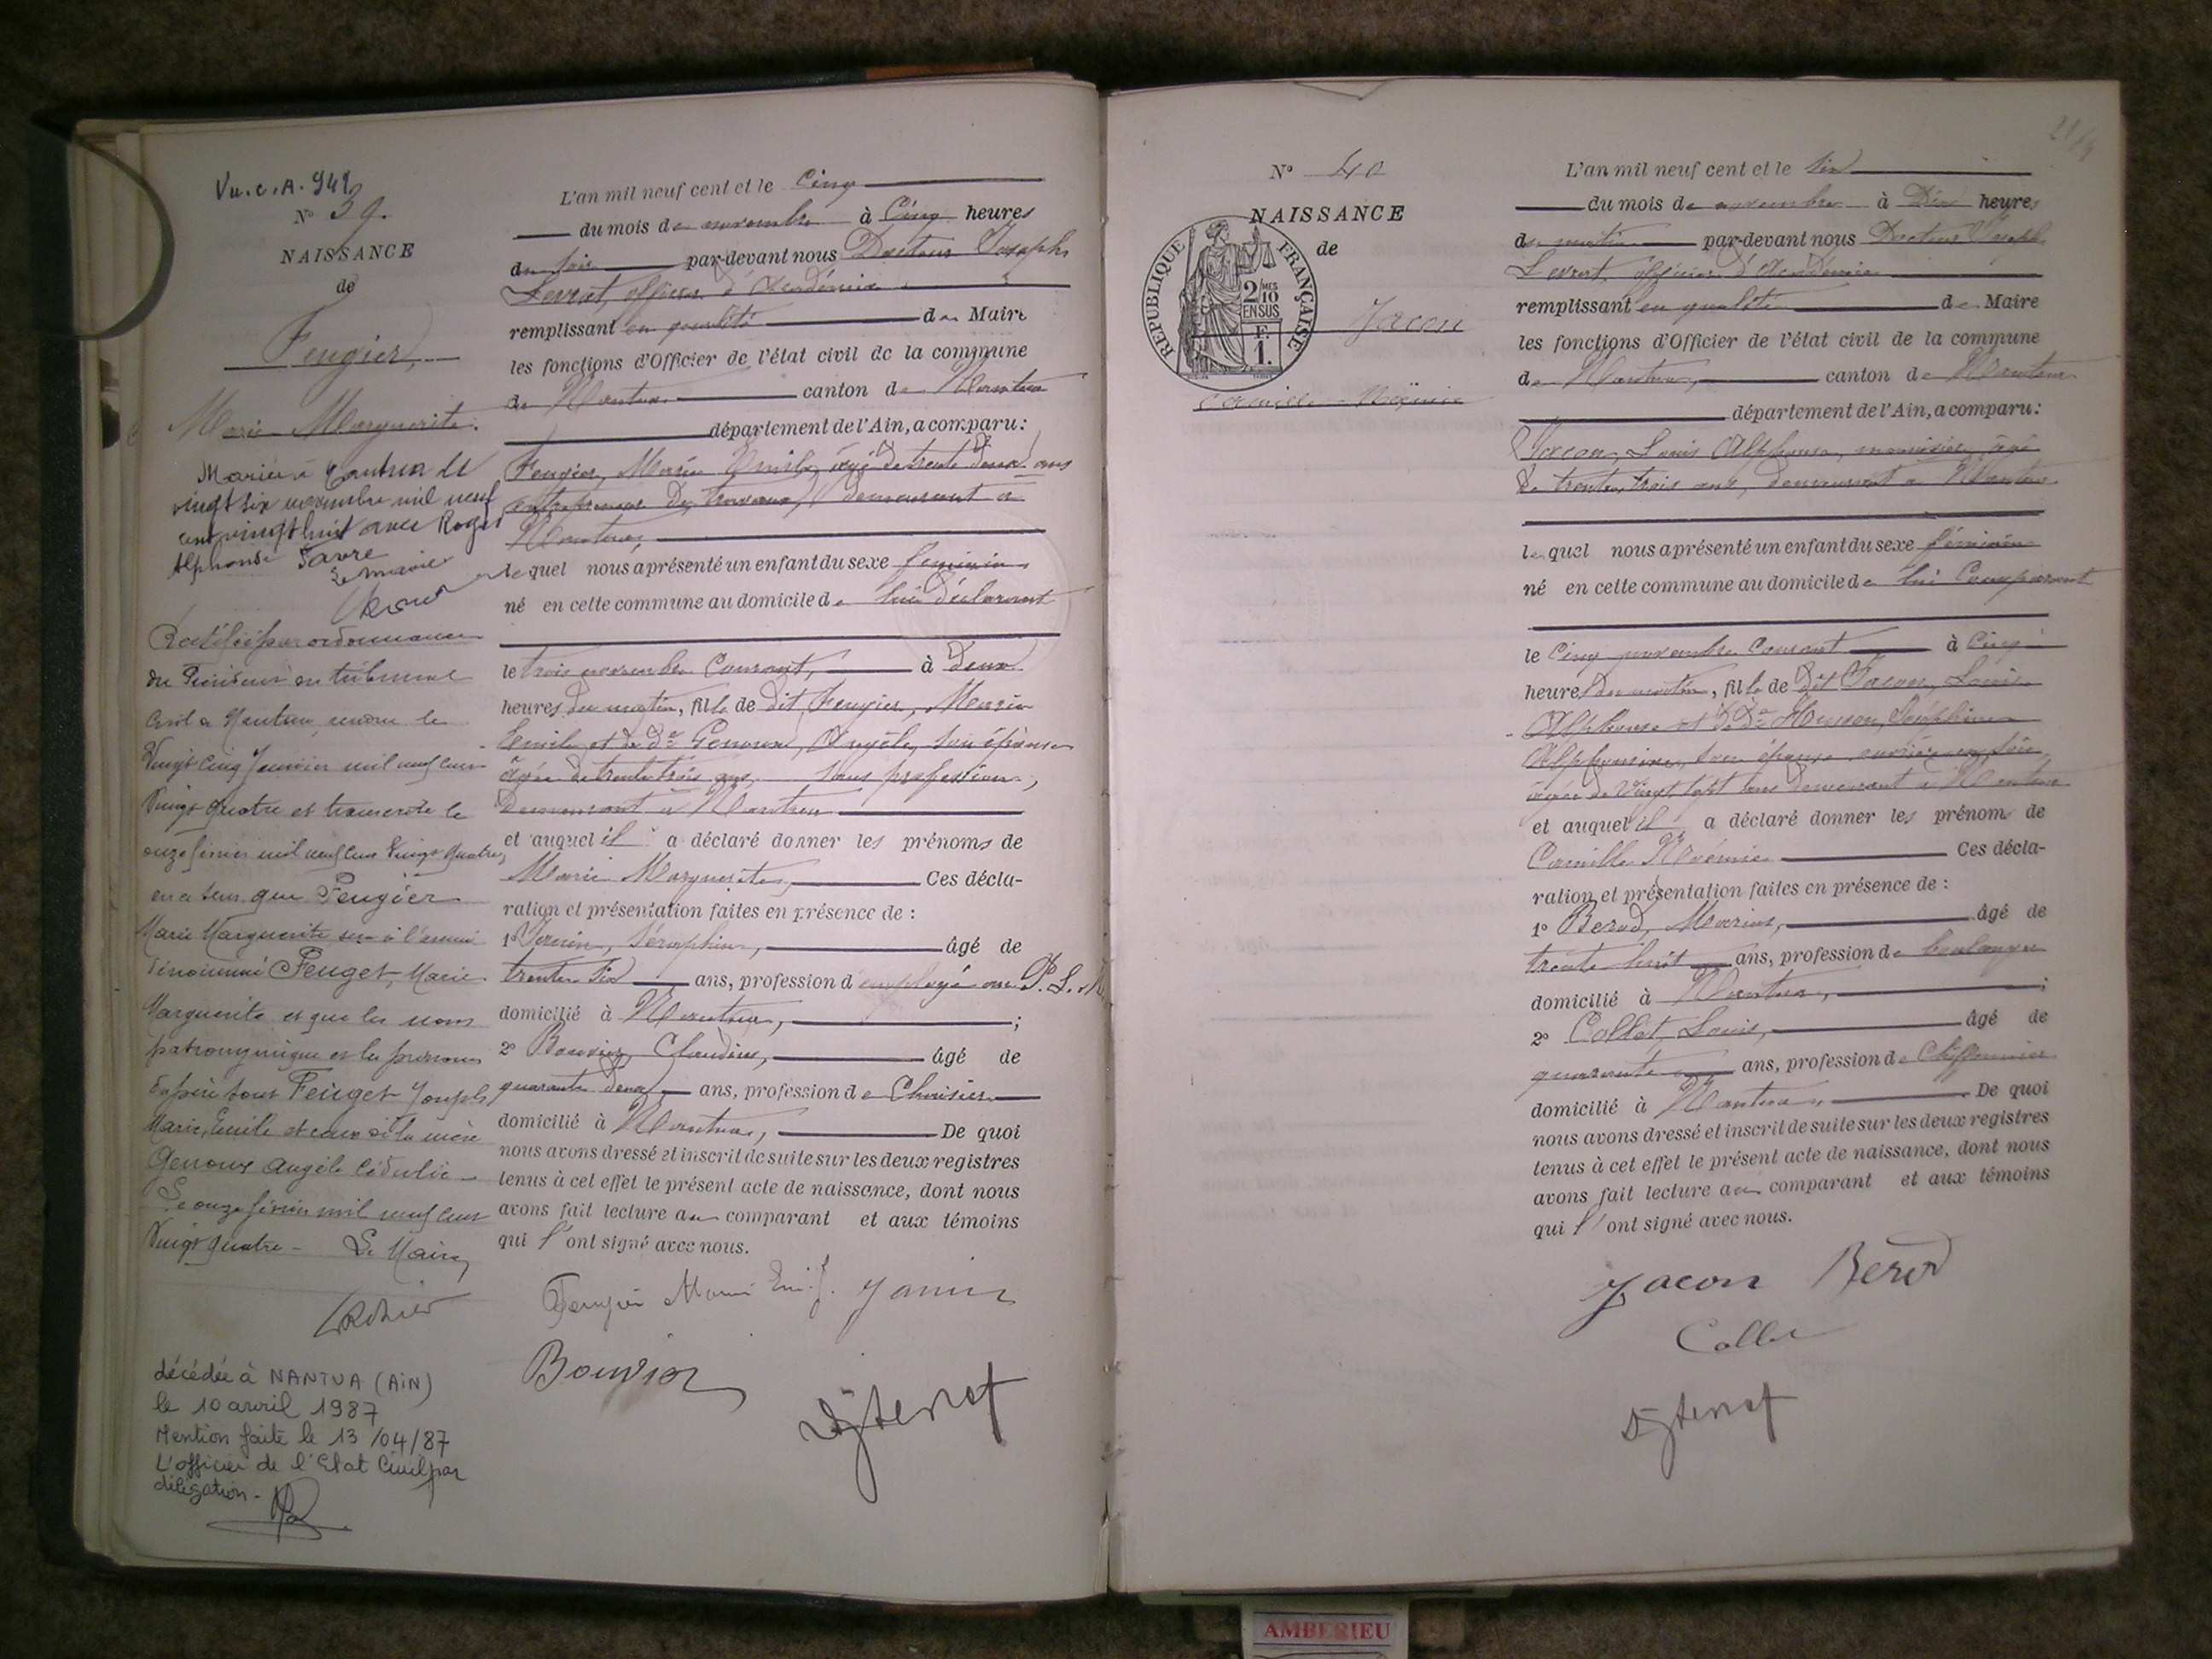 Vu. c. A. 949
N° 39.
NAISSANCE
de
Feugier,
Marie Marguerite.
Mariée à Nantua le
vingt six novembre mil neuf
cent vingt huit avec Roger
Alphonse Favre
Le maire
Rectifié par ordonnance
du Président du tribunal
Civil de Nantua, rendue le
Vingt cinq Janvier mil neuf cent
Vingt quatre et transcrite le
onze février mil neuf cent Vingt quatre,
en ce sens que Feugier
Marie Marguerite sera à l'avenir
dénommé Feuget, Marie
Marguerite et que les noms
patronymique et les prénoms
du père sont Feuget Joseph
Marie, Emile et ceux de la mère
Genoux Angèle
Le onze février mil neuf cent
Vingt quatre - Le Maire,
décédée à NANTUA (AiN)
le 10 avril 1987
Mention faite le 13/04/87
L'officier de l'Etat Civil par
délégation -
L'an mil neuf cent et le Cinq
du mois de novembre à Cinq heures
du soir par-devant nous Docteur Joseph
Levrat, officier d'Académie
remplissant en qualité de Maire
les fonctions d'Officier de l'état civil de la commune
de Nantua canton de Nantua
département de l'Ain, a comparu:
Feugier, Marie Emile, âgé de trente deux ans
entrepreneur de travaux, demeurant à
Nantua,
lequel nous a présenté un enfant du sexe féminin
né en cette commune au domicile de lui déclarant
le trois novembre Courant, à Deux
heures du matin, fille de dit Feugier, Marie
Emile et de De Genoux, Angèle, son épouse
âgée de trente trois ans, sans profession,
demeurant à Nantua
et auquel il a déclaré donner les prénoms de
Marie Marguerite, Ces décla-
ration et présentation faites en présence de :
1° Séraphin, âgé de
trente six ans, profession d'employé au P. L. M
domicilié à Nantua, ;
2° Bouvier, Claudius, âgé de
quarante deux ans, profession de Chaisier
domicilié à Nantua, De quoi
nous avons dressé et inscrit de suite sur les deux registres
tenus à cet effet le présent acte de naissance, dont nous
avons fait lecture au comparant et aux témoins
qui l'ont signé avec nous.
Feugier Marie Emile Janin
Bouvier
Dr J Levrat
21
N° 40
NAISSANCE
de
RÉPUBLIQUE FRANÇAISE
2/MES
10
EN SUS
F.
1.
Jacon
Camille Noémie
L'an mil neuf cent et le six
du mois de novembre à Dix heures
du matin par-devant nous Docteur Joseph
Levrat, officier d'Académie
remplissant en qualité de Maire
les fonctions d'Officier de l'état civil de la commune
de Nantua, canton de Nantua
département de l'Ain, a comparu:
Jacon, Louis Alphonse, menuisier, âgé
de trente trois ans, demeurant à Nantua
lequel nous a présenté un enfant du sexe féminin
né en cette commune au domicile de lui Comparant
le Cinq novembre Courant à Cinq
heures du matin, fille de dit Jacon, Louis
Alphonse et de De Joséphine
Alphonsine, son épouse ouvrière en soie
âgée de Vingt sept ans demeurant à Nantua
et auquel il a déclaré donner les prénoms de
Camille Noémie Ces décla-
ration et présentation faites en présence de :
1° Berod, Marius, âgé de
trente huit ans, profession de boulanger
domicilié à Nantua, ;
2° Collet, Louis, âgé de
quarante ans, profession de Chiffonnier
domicilié à Nantua, De quoi
nous avons dressé et inscrit de suite sur les deux registres
tenus à cet effet le présent acte de naissance, dont nous
avons fait lecture au comparant et aux témoins
qui l'ont signé avec nous.
Jacon Berod
Collet
Dr J Levrat
AMBERIEU